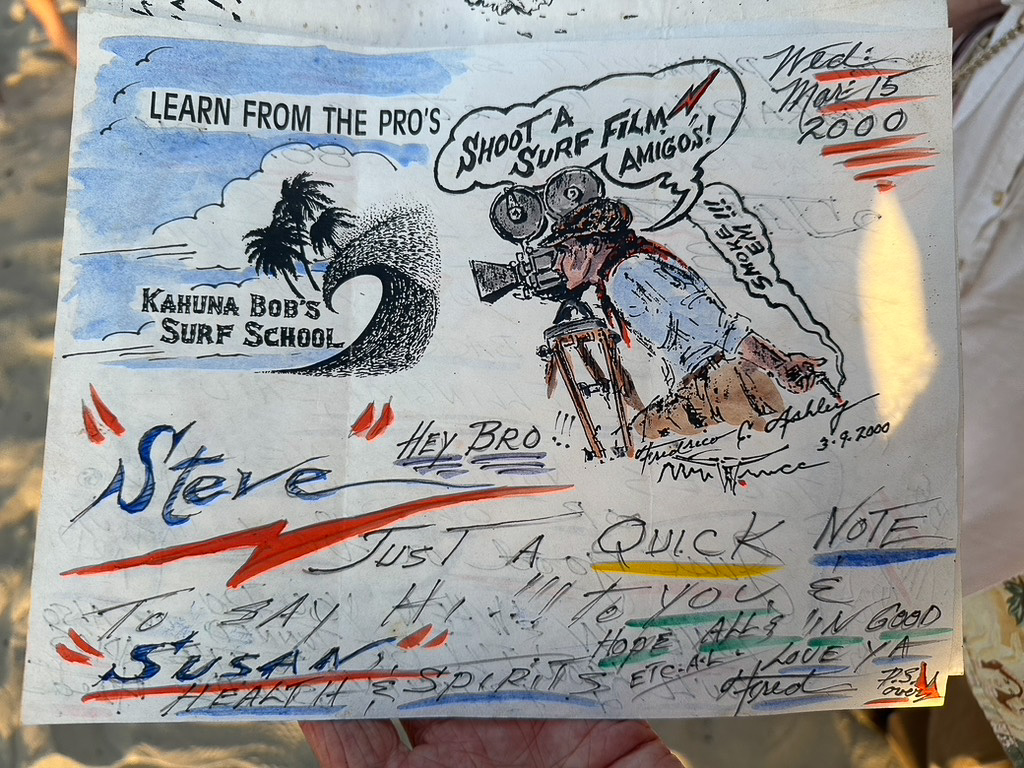 Wed:
Mar: 15
2000
LEARN FROM THE PRO'S
SHOOT A
SURF FILM
AMIGO'S!
SMOKE
'EM
!!!
KAHUNA BOB'S
SURF SCHOOL
3.9.2000
"Steve" HEY BRO !!!
JUST A QUICK NOTE
TO SAY HI... !!! To YOU, &
"SUSAN"
HOPE ALL'S IN GOOD
HEALTH & SPIRITS ETC.
LOVE YA
Fred
P.S.
over